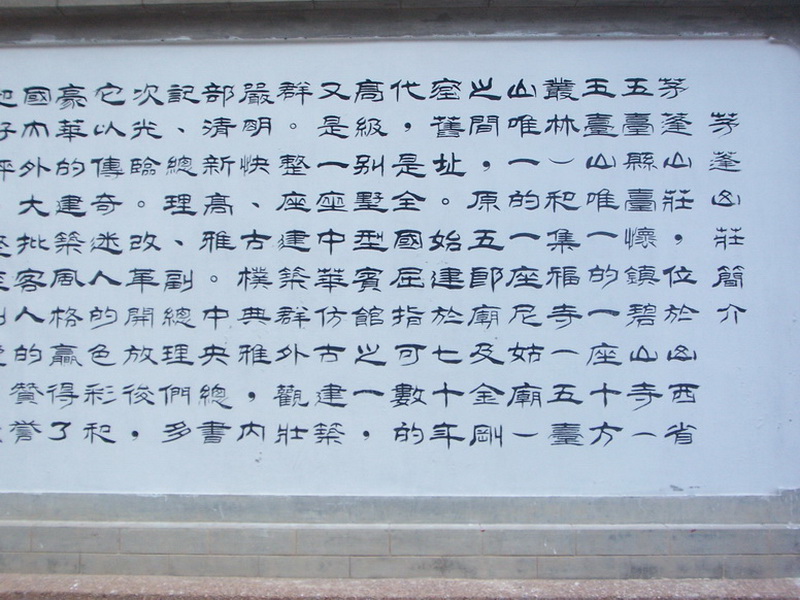 茅蓬山莊簡介
茅蓬山莊，位於山西省
五臺縣臺懷鎮碧山寺（
五臺山唯一的一座十方
叢林）和集福寺（五臺
山唯一的一座尼姑廟）
之間，原五郎廟及金剛
窟舊址。始建於七十年
代，是全國屈指可數的
高級別墅型賓館之一，
又是一座中華仿古建築
群。整座建築群外觀壯
嚴明快、古樸典雅，內
部清新高雅。中央總書
記、總理、副總理們多
次光臨。改革開放後，
它以傳奇迷人的色彩和
豪華的建築風格贏得了
國內外大批客人的贊譽